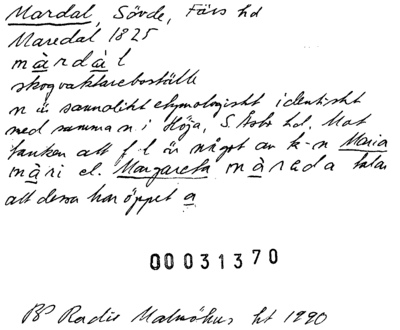 Mardal, Sövde, Färs hd
Maredal 1825
màrdàl
skogvaktareboställe
n är sannolikt etymologiskt identiskt
med samma n i Höja, S. Åsbo hd. Mot
tanken att f l är något av k-n Maria
màri el. Margareta màreda talar
att dessa har öppet a
00031370
BP Radié Malmöhus ht 1990